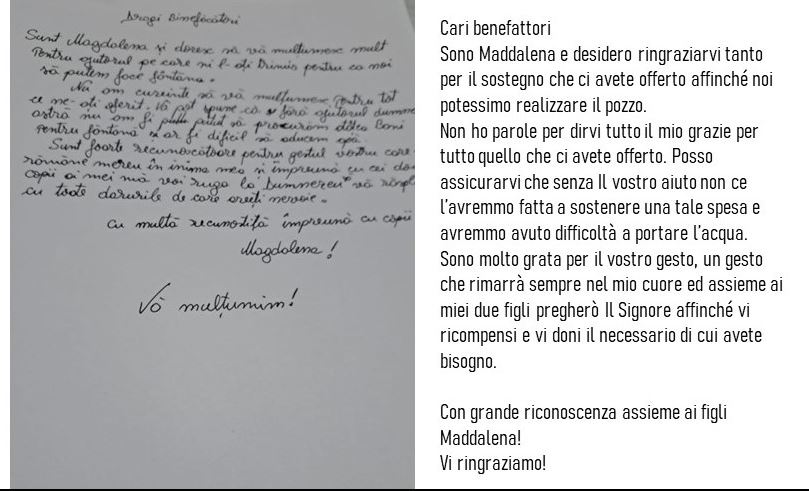 Dragi Binefăcători
Sunt Magdalena și doresc să vă mulțumesc mult
pentru ajutorul pe care ni l-ați trimis pentru ca noi
să putem face fântâna.
Nu am cuvinte să vă mulțumesc pentru tot
ce ne-ați oferit. Vă pot spune că fără ajutorul dumne
astră nu am fi putut să procurăm atâția bani
pentru fântână și ar fi dificil să aducem apă.
Sunt foarte recunoscătoare pentru gestul vostru care
române mereu în inima mea și împreună cu cei doi
copii ai mei mă voi ruga la Dumnezeu să vă răspl
cu toate darurile de care aveți nevoie.
Cu multă recunoștiță împreună cu copii
Magdalena!
Vă mulțumim!
Cari benefattori
Sono Maddalena e desidero ringraziarvi tanto
per il sostegno che ci avete offerto affinché noi
potessimo realizzare il pozzo.
Non ho parole per dirvi tutto il mio grazie per
tutto quello che ci avete offerto. Posso
assicurarvi che senza Il vostro aiuto non ce
l'avremmo fatta a sostenere una tale spesa e
avremmo avuto difficoltà a portare l'acqua.
Sono molto grata per il vostro gesto, un gesto
che rimarrà sempre nel mio cuore ed assieme ai
miei due figli pregherò Il Signore affinché vi
ricompensi e vi doni il necessario di cui avete
bisogno.
Con grande riconoscenza assieme ai figli
Maddalena!
Vi ringraziamo!